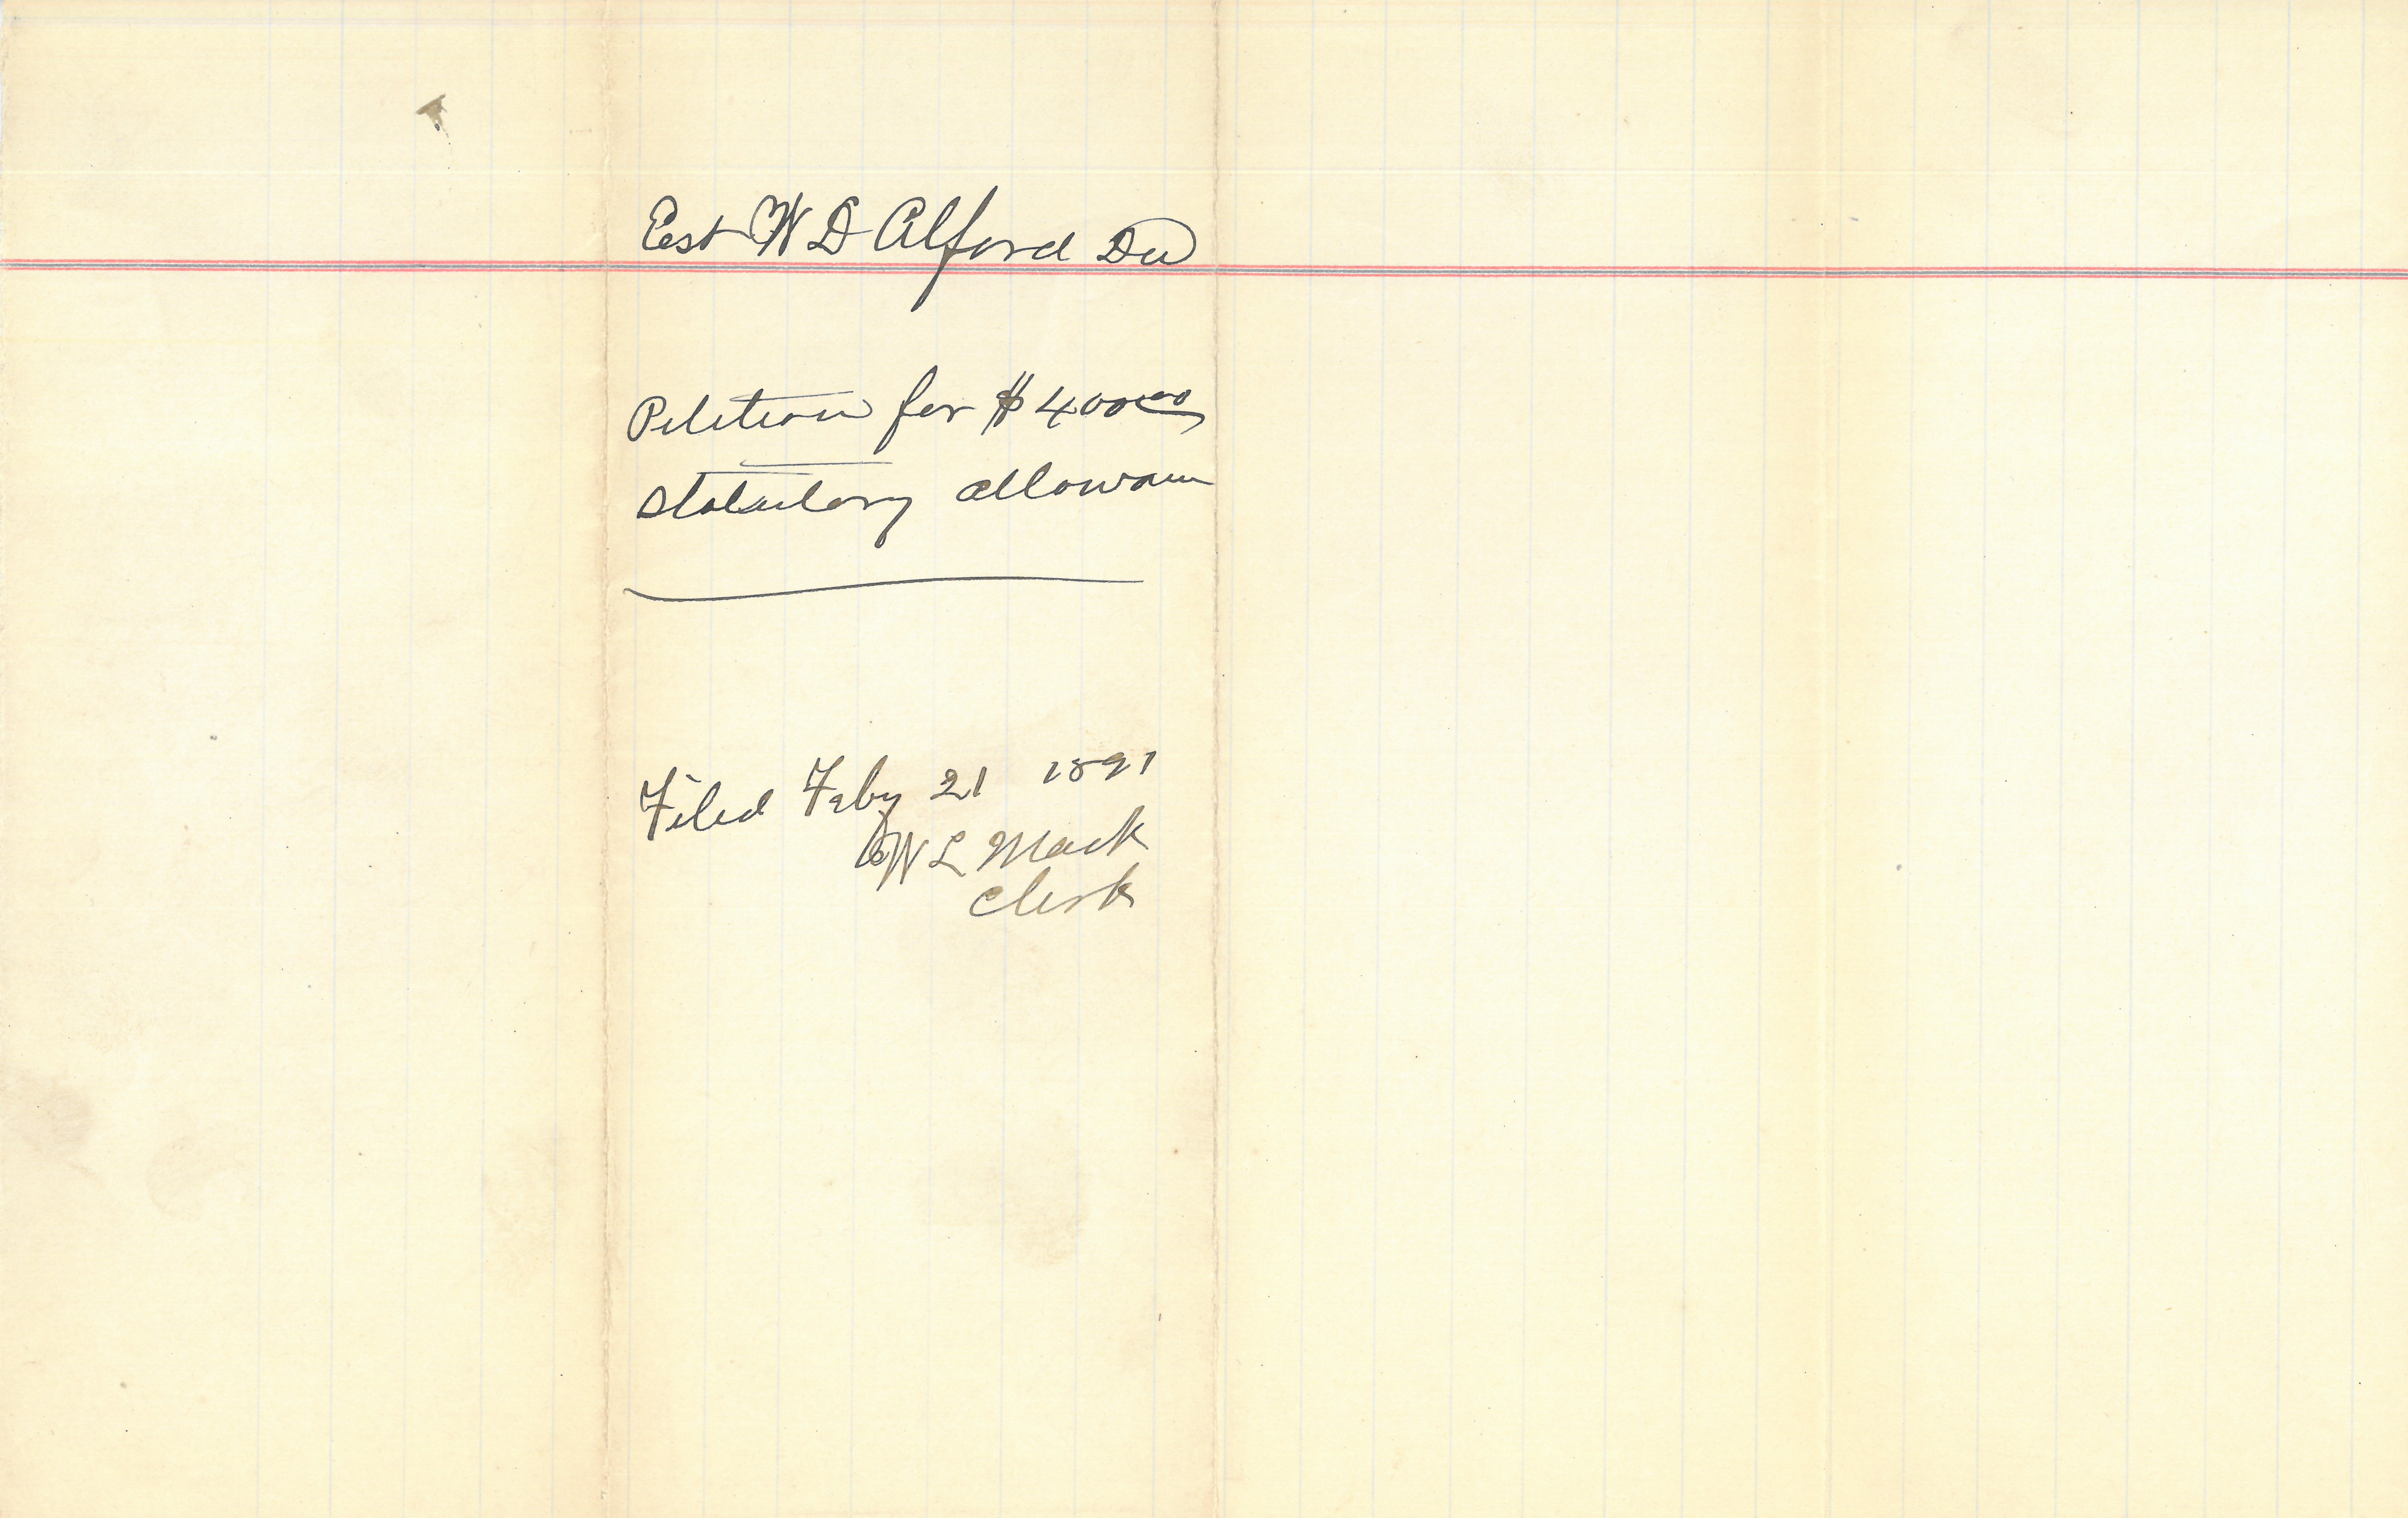 Est W D Alford Dec
Petition for $400.00
Statutory allowance
Filed Feby 21 1891
W L Mack
Clerk